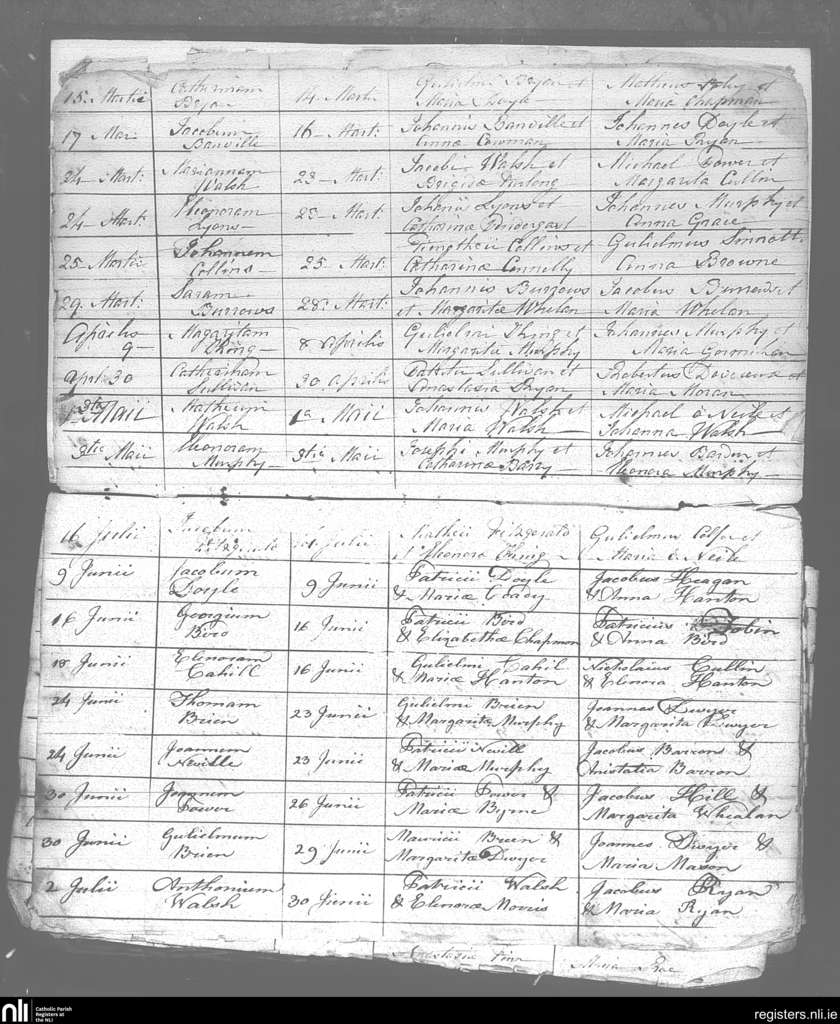 15 Martii Catharinam 14 Marti Gulielmi Bryan et Matheus et
Bryan Maria Doyle Maria Chapman
17 Mar: Jacobum 16 Mart: Johannis Banville et Johannes Doyle et
Banville Anna Cowman Maria Ryan
24 Mart: Mariannam 23 Mart: Jacobi Walsh et Michael Power et
Walsh Brigidæ Furlong Margarita Cullin
24 Mart: Eleonoram 23 Mart: Johanis Lyons et Johannes Murphy et
Lyons Catharinæ Pendergast Anna Grace
25 Martii Johannem 25 Mart: Timothei Collins et Gulielmus Sinnott
Collins Catharinæ Connelly Anna Browne
29 Mart: Saram 28 Mart: Johannis Burrows Jacobus Burrows et
Burrows et Margaritæ Whelan Maria Whelan
Aprilis Magaritam 8 Aprilis Gulielmi Thing et Johannes Murphy et
9 Thing Margaritæ Murphy Maria
April 30 Catherinam 30 Aprilis Patritii Sullivan et Robertus Devereux et
Sullivan Anastasia Ryan Maria Moran
Maii Walsh 1a Maii Johannis Walsh et Michael o Neile et
Maria Walsh Johanna Walsh
3tia Maii Eleonoram 3tia Maii Josephi Murphy et Johannes Bardin et
Murphy Catharinæ Barry Eleonora Murphy
16 Julii Jacobum Julii Mathei Fitzgerald Gulielmus Colfer et
Fitzgerald et Eleonora Maria o Neile
9 Junii Jacobum 9 Junii Patricii Doyle Jacobus Heagan
Doyle & Mariæ Coady & Anna Hanton
16 Junii Georgium 16 Junii Patricii Bird Patricius Tobin
Bird & Elizabethæ Chapman & Anna Bird
18 Junii Elenoram 16 Junii Gulielmi Cahil Nicholaus Cullin
Cahill & Mariæ Hanton & Elenora Hanton
24 Junii Thomam 23 Junii Gulielmi Brien Joannes Dwyer
Brien & Margaritæ Murphy & Margarita Dwyer
24 Junii Joannem 23 Junii Patricii Nevill Jacobus Barron &
Neville & Mariæ Murphy Anistatia Barron
30 Junii Joannem 26 Junii Patricii Power & Jacobus Hill &
Power Mariæ Byrne Margarita Whealan
30 Junii Gulielmum 29 Junii Mauricii Brien & Joannes Dwyer &
Brien Margaritæ Dwyer Maria Mason
2 Julii Anthonium 30 Junii Patricii Walsh Jacobus Ryan
Walsh & Elenoræ Morris & Maria Ryan
Anastasia Finn Maria Rae
nli Catholic Parish Registers at the NLI registers.nli.ie